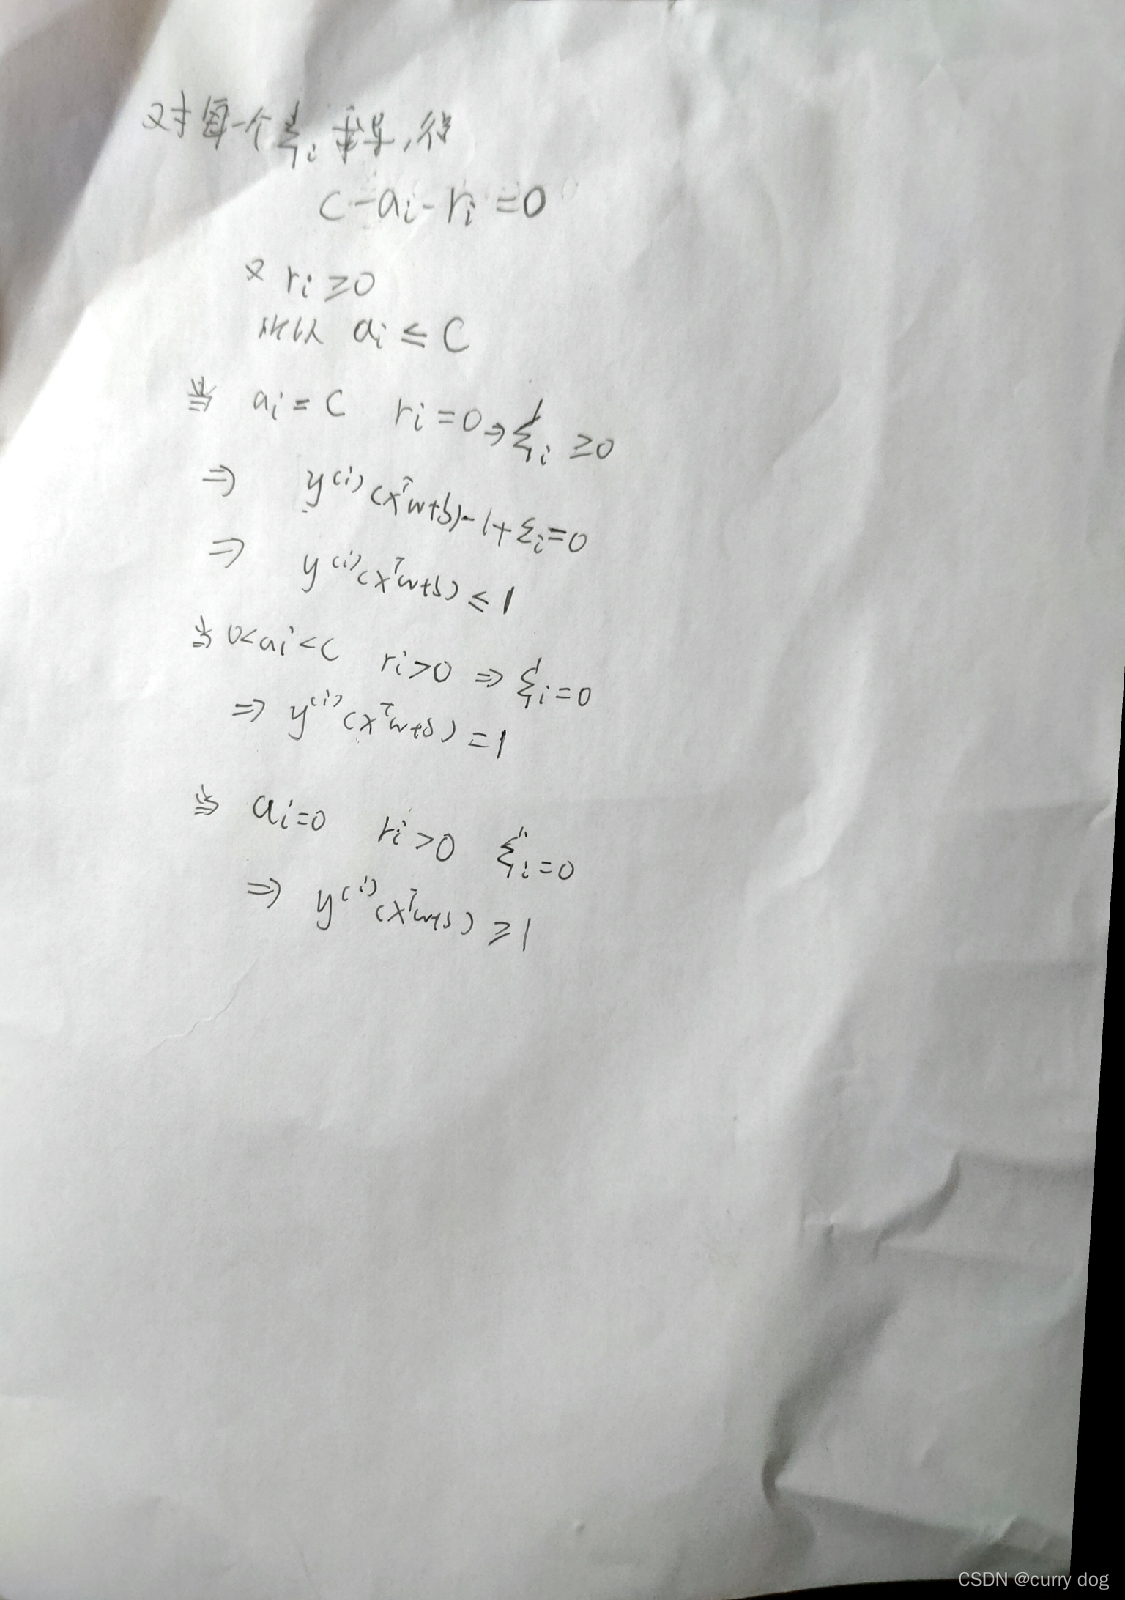 对每一个ξᵢ求导,得
C-aᵢ-rᵢ=0
又 rᵢ≥0
所以 aᵢ≤C
当 aᵢ=C rᵢ=0⇒ξᵢ≥0
⇒ y⁽ⁱ⁾(xᵀw+b)-1+ξᵢ=0
⇒ y⁽ⁱ⁾(xᵀw+b)≤1
当 0<aᵢ<C rᵢ>0 ⇒ ξᵢ=0
⇒ y⁽ⁱ⁾(xᵀw+b)=1
当 aᵢ=0 rᵢ>0 ξᵢ=0
⇒ y⁽ⁱ⁾(xᵀw+b)≥1
CSDN @curry dog